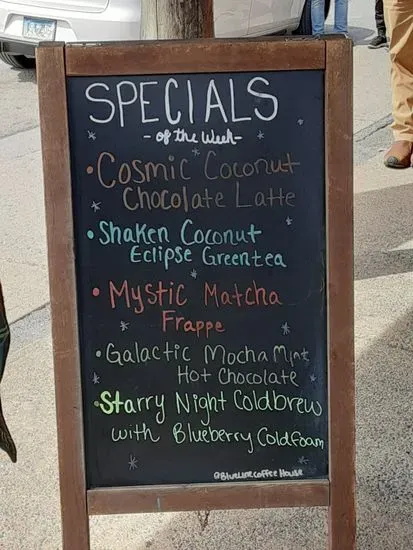 SPECIALS
- of the Week -
• Cosmic Coconut
Chocolate Latte
• Shaken Coconut
Eclipse Greentea
• Mystic Matcha
Frappe
• Galactic Mocha Mint
Hot Chocolate
• Starry Night Coldbrew
with Blueberry Coldfoam
@BlueLineCoffee House